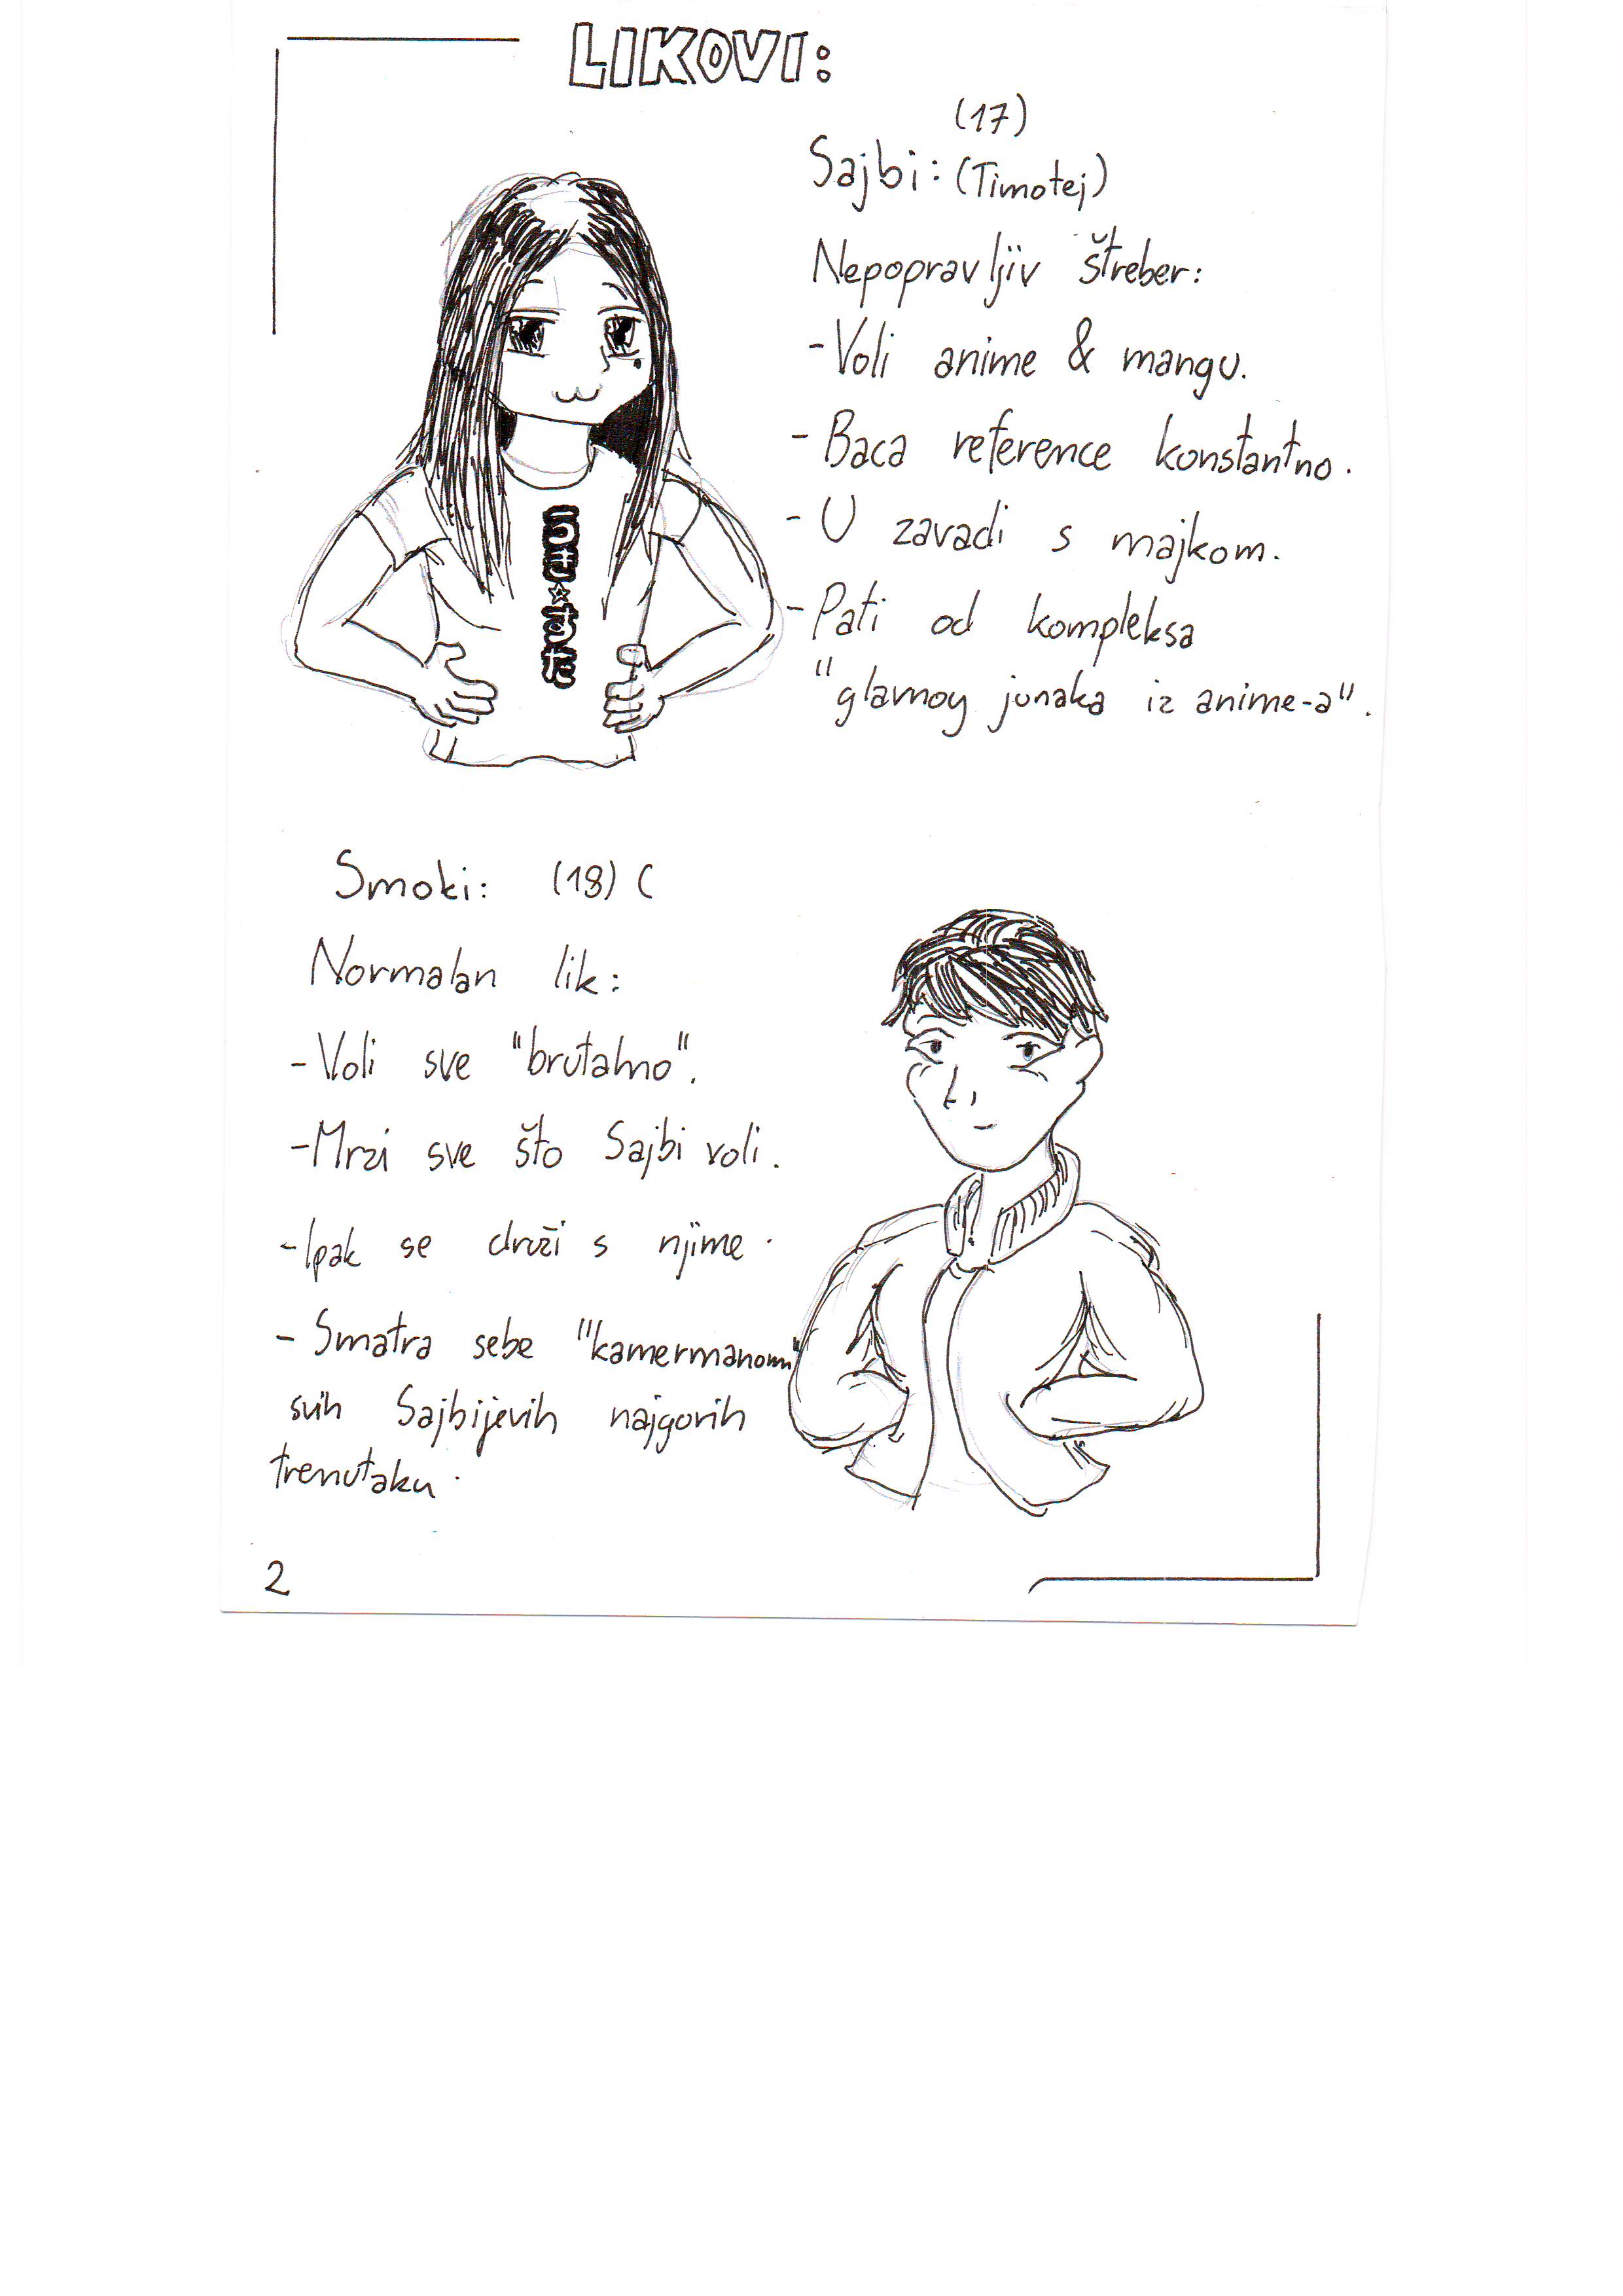 LIKOVI:
(17)
Sajbi: (Timotej)
Nepopravljiv štreber:
-Voli anime & mangu.
- Baca reference konstantno.
- U zavadi s majkom.
- Pati od kompleksa
"glavnog junaka iz anime-a".
Smoki: (18) (
Normalan lik:
-Voli sve "brutalno".
-Mrzi sve što Sajbi voli.
-Ipak se druži s njime.
- Smatra sebe "kamermanom"
svih Sajbijevih najgorih
trenutaku.
2